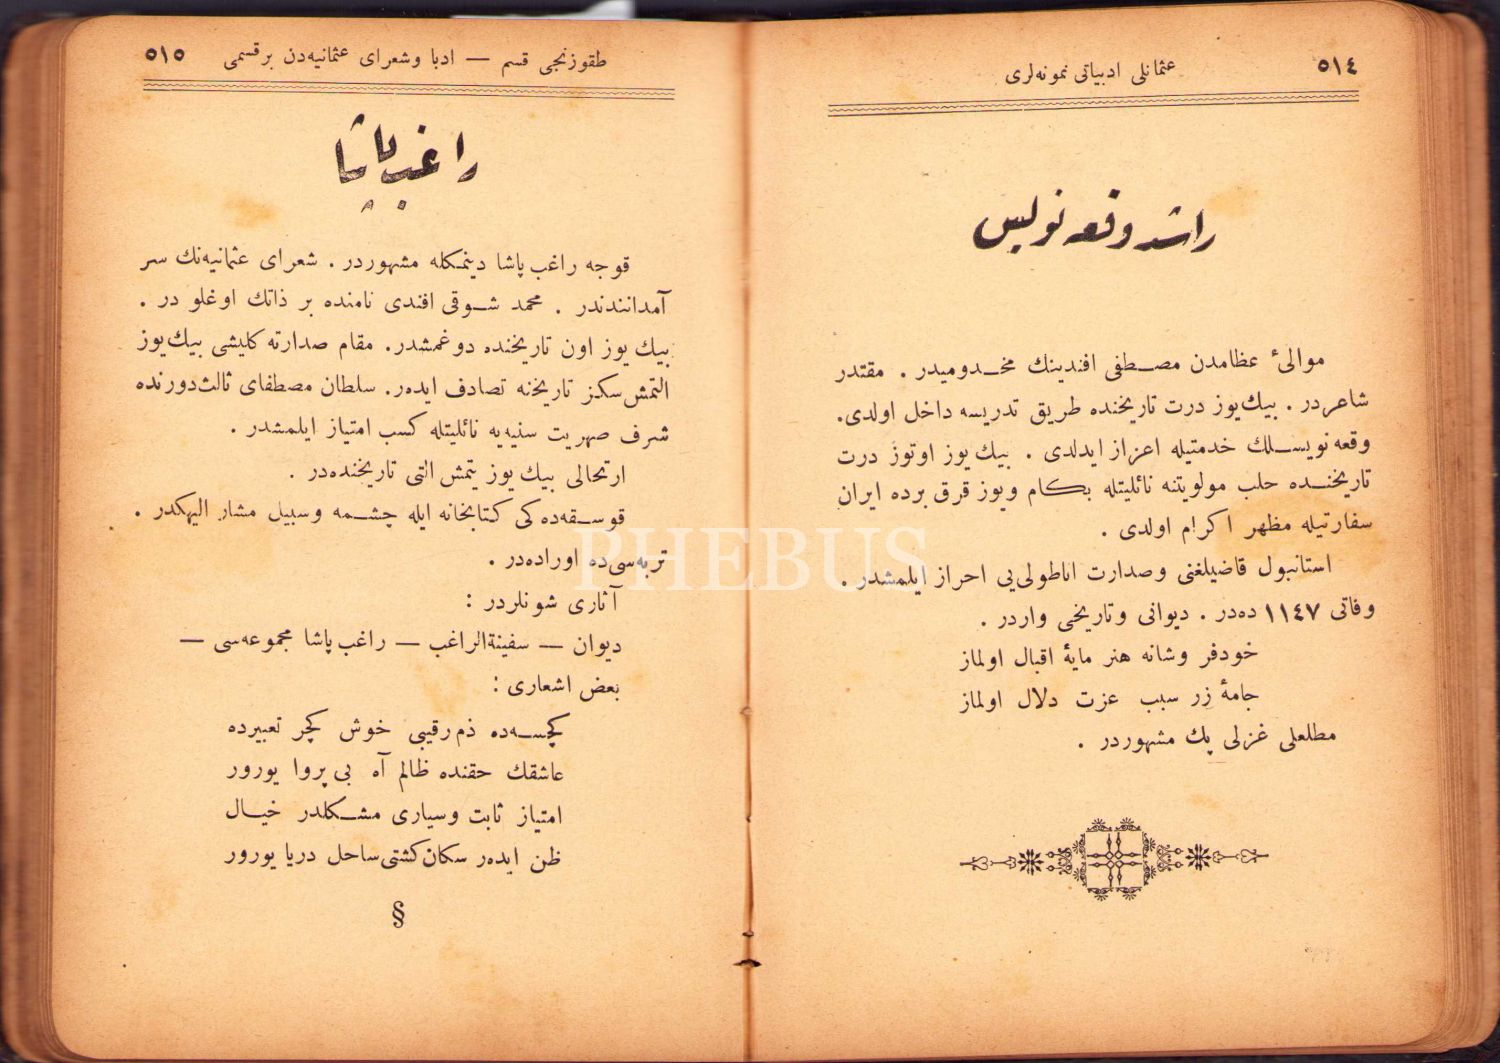 ٥١٤
عثمانلی ادبیاتی نمونه‌لری
راشد وقعه نویس
موالیٔ عظامدن مصطفی افندینك مخدومیدر . مقتدر
شاعردر . بیك‌یوز درت تاریخنده طریق تدریسه داخل اولدی.
وقعه نویسلك خدمتیله اعزاز ایدلدی . بیك یوز اوتوز درت
تاریخنده حلب مولویتنه نائلیتله بكام ویوز قرق برده ایران
سفارتیله مظهر اكرام اولدی .
استانبول قاضیلغنی وصدارت اناطولی‌یی احراز ایلمشدر .
وفاتی ١١٤٧ ده‌در . دیوانی وتاریخی واردر .
خودفر وشانه هنر مایهٔ اقبال اولماز
جامهٔ زر سبب عزت دلال اولماز
مطلعلی غزلی پك مشهوردر .
طقوزنجی قسم — ادبا وشعرای عثمانیه‌دن بر قسمی
٥١٥
راغب پاشا
قوجه راغب پاشا دینمكله مشهوردر . شعرای عثمانیه‌نك سر
آمدانندندر . محمد شوقی افندی نامنده بر ذاتك اوغلو در .
بیك یوز اون تاریخنده دوغمشدر. مقام صدارته كلیشی بیك‌یوز
التمش سكز تاریخنه تصادف ایده‌ر. سلطان مصطفای ثالث دورنده
شرف صهریت سنیه‌یه نائلیتله كسب امتیاز ایلمشدر .
ارتحالی بیك یوز یتمش التی تاریخنده‌در .
قوسقه‌ده كی كتابخانه ایله چشمه وسبیل مشار الیهكدر .
تربه‌سی‌ده اوراده‌در .
آثاری شونلردر :
دیوان — سفینة‌الراغب — راغب پاشا مجموعه‌سی —
بعض اشعاری :
كچسه‌ده ذم رقیبی خوش كچر تعبیرده
عاشقك حقنده ظالم آه بی پروا یورور
امتیاز ثابت وسیاری مشكلدر خیال
ظن ایده‌ر سكان كشتی ساحل دریا یورور
§
PHEBUS